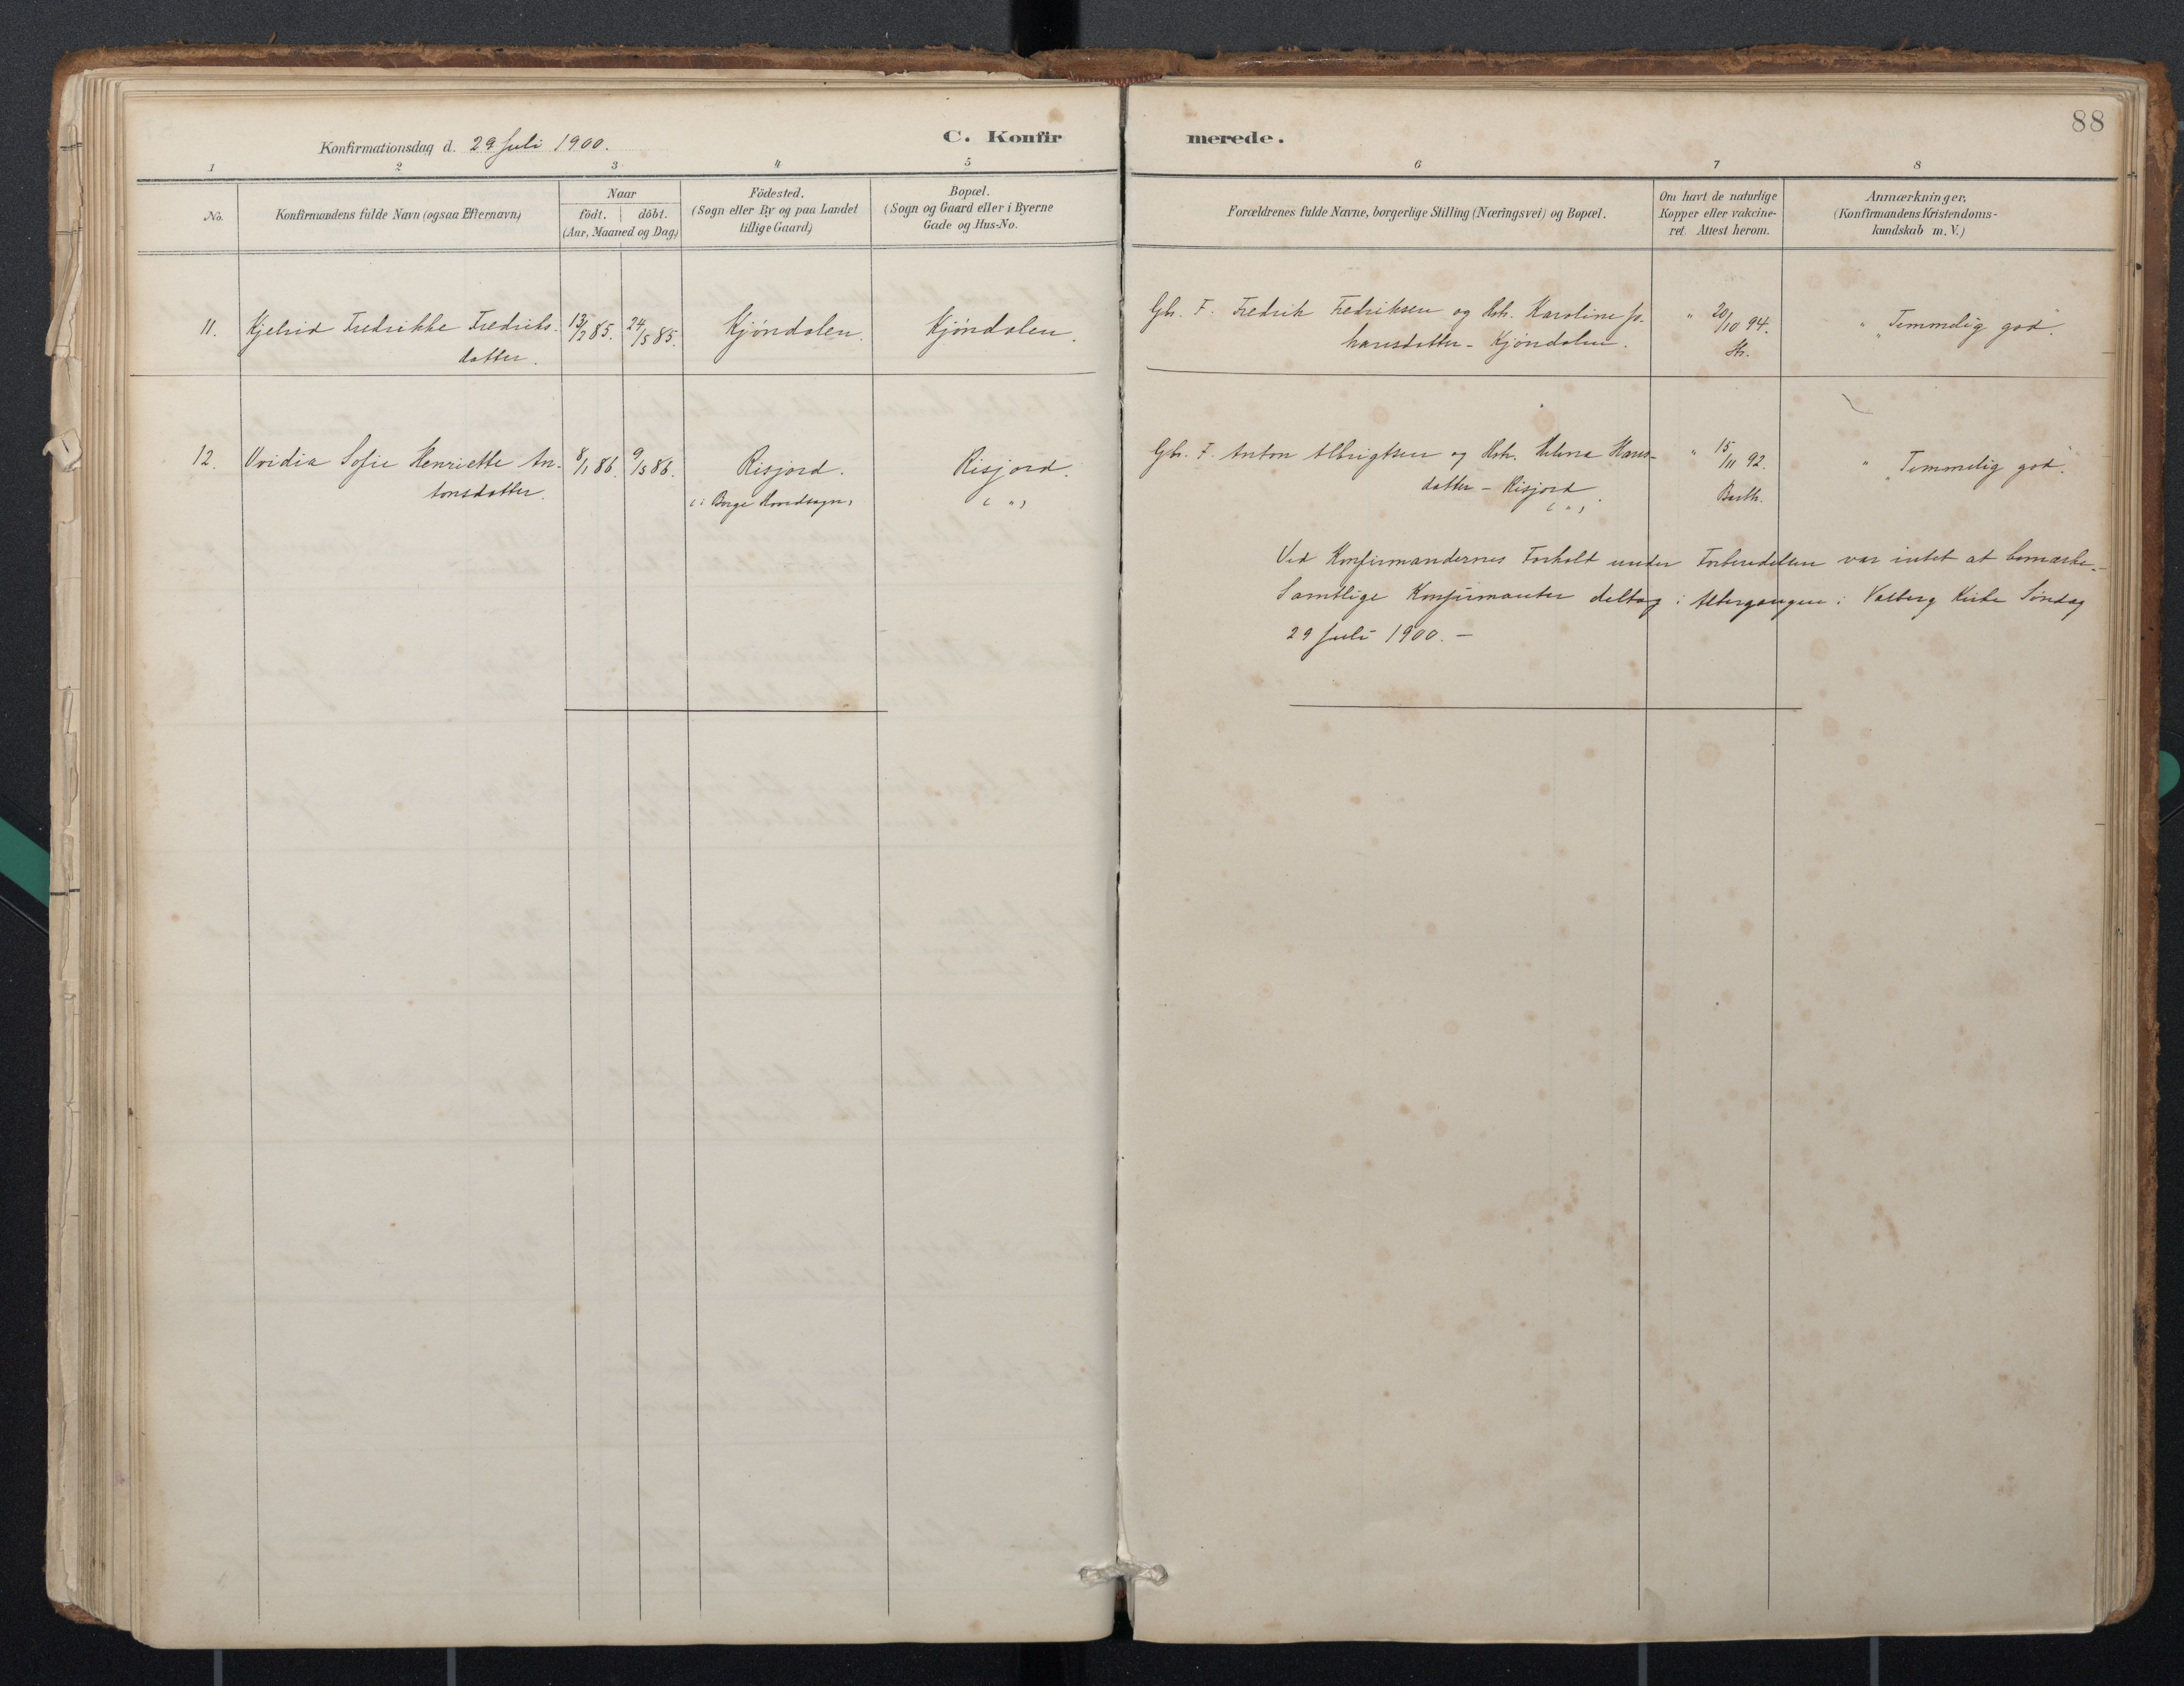 88
Konfirmationsdag d. 29 Juli 1900.
C. Konfirmerede.
1 2 3 4 5 6 7 8
No.
Konfirmandens fulde Navn (ogsaa Efternavn)
Naar
födt. döbt.
(Aar, Maaned og Dag)
Födested.
(Sogn eller By og paa Landet
tillige Gaard)
Bopæl.
(Sogn og Gaard eller i Byerne
Gade og Hus-No.
Forældrenes fulde Navne, borgerlige Stilling (Næringsvei) og Bopæl.
Om havt de naturlige
Kopper eller vakcine-
ret. Attest herom.
Anmærkninger,
(Konfirmandens Kristendoms-
kundskab m. V.)
11. Kjelrid Fredrikke Fredriks- 13/2 85. 24/5 85. Kjøndalen. Kjøndalen. Gbr. F. Fredrik Fredriksen og Hstr. Karoline Jo- " 20/10 94. " Temmelig god.
datter. hansdatter - Kjøndalen. Str.
12. Ovidia Sofie Henriette An- 8/1 86. 9/5 86. Risjord. Risjord. Gbr. F. Anton Albrigtsen og Hstr. Helena Hans- " 15/11 92. " Temmelig god.
tonsdatter. (: Borge Hovedsogn) ( " ) datter - Risjord. Barth.
( " )
Ved Konfirmandernes Forhold under Forberedelsen var intet at bemærke.-
Samtlige Konfirmanter deltog i Altergangen i Valberg Kirke Søndag
29 Juli 1900. -